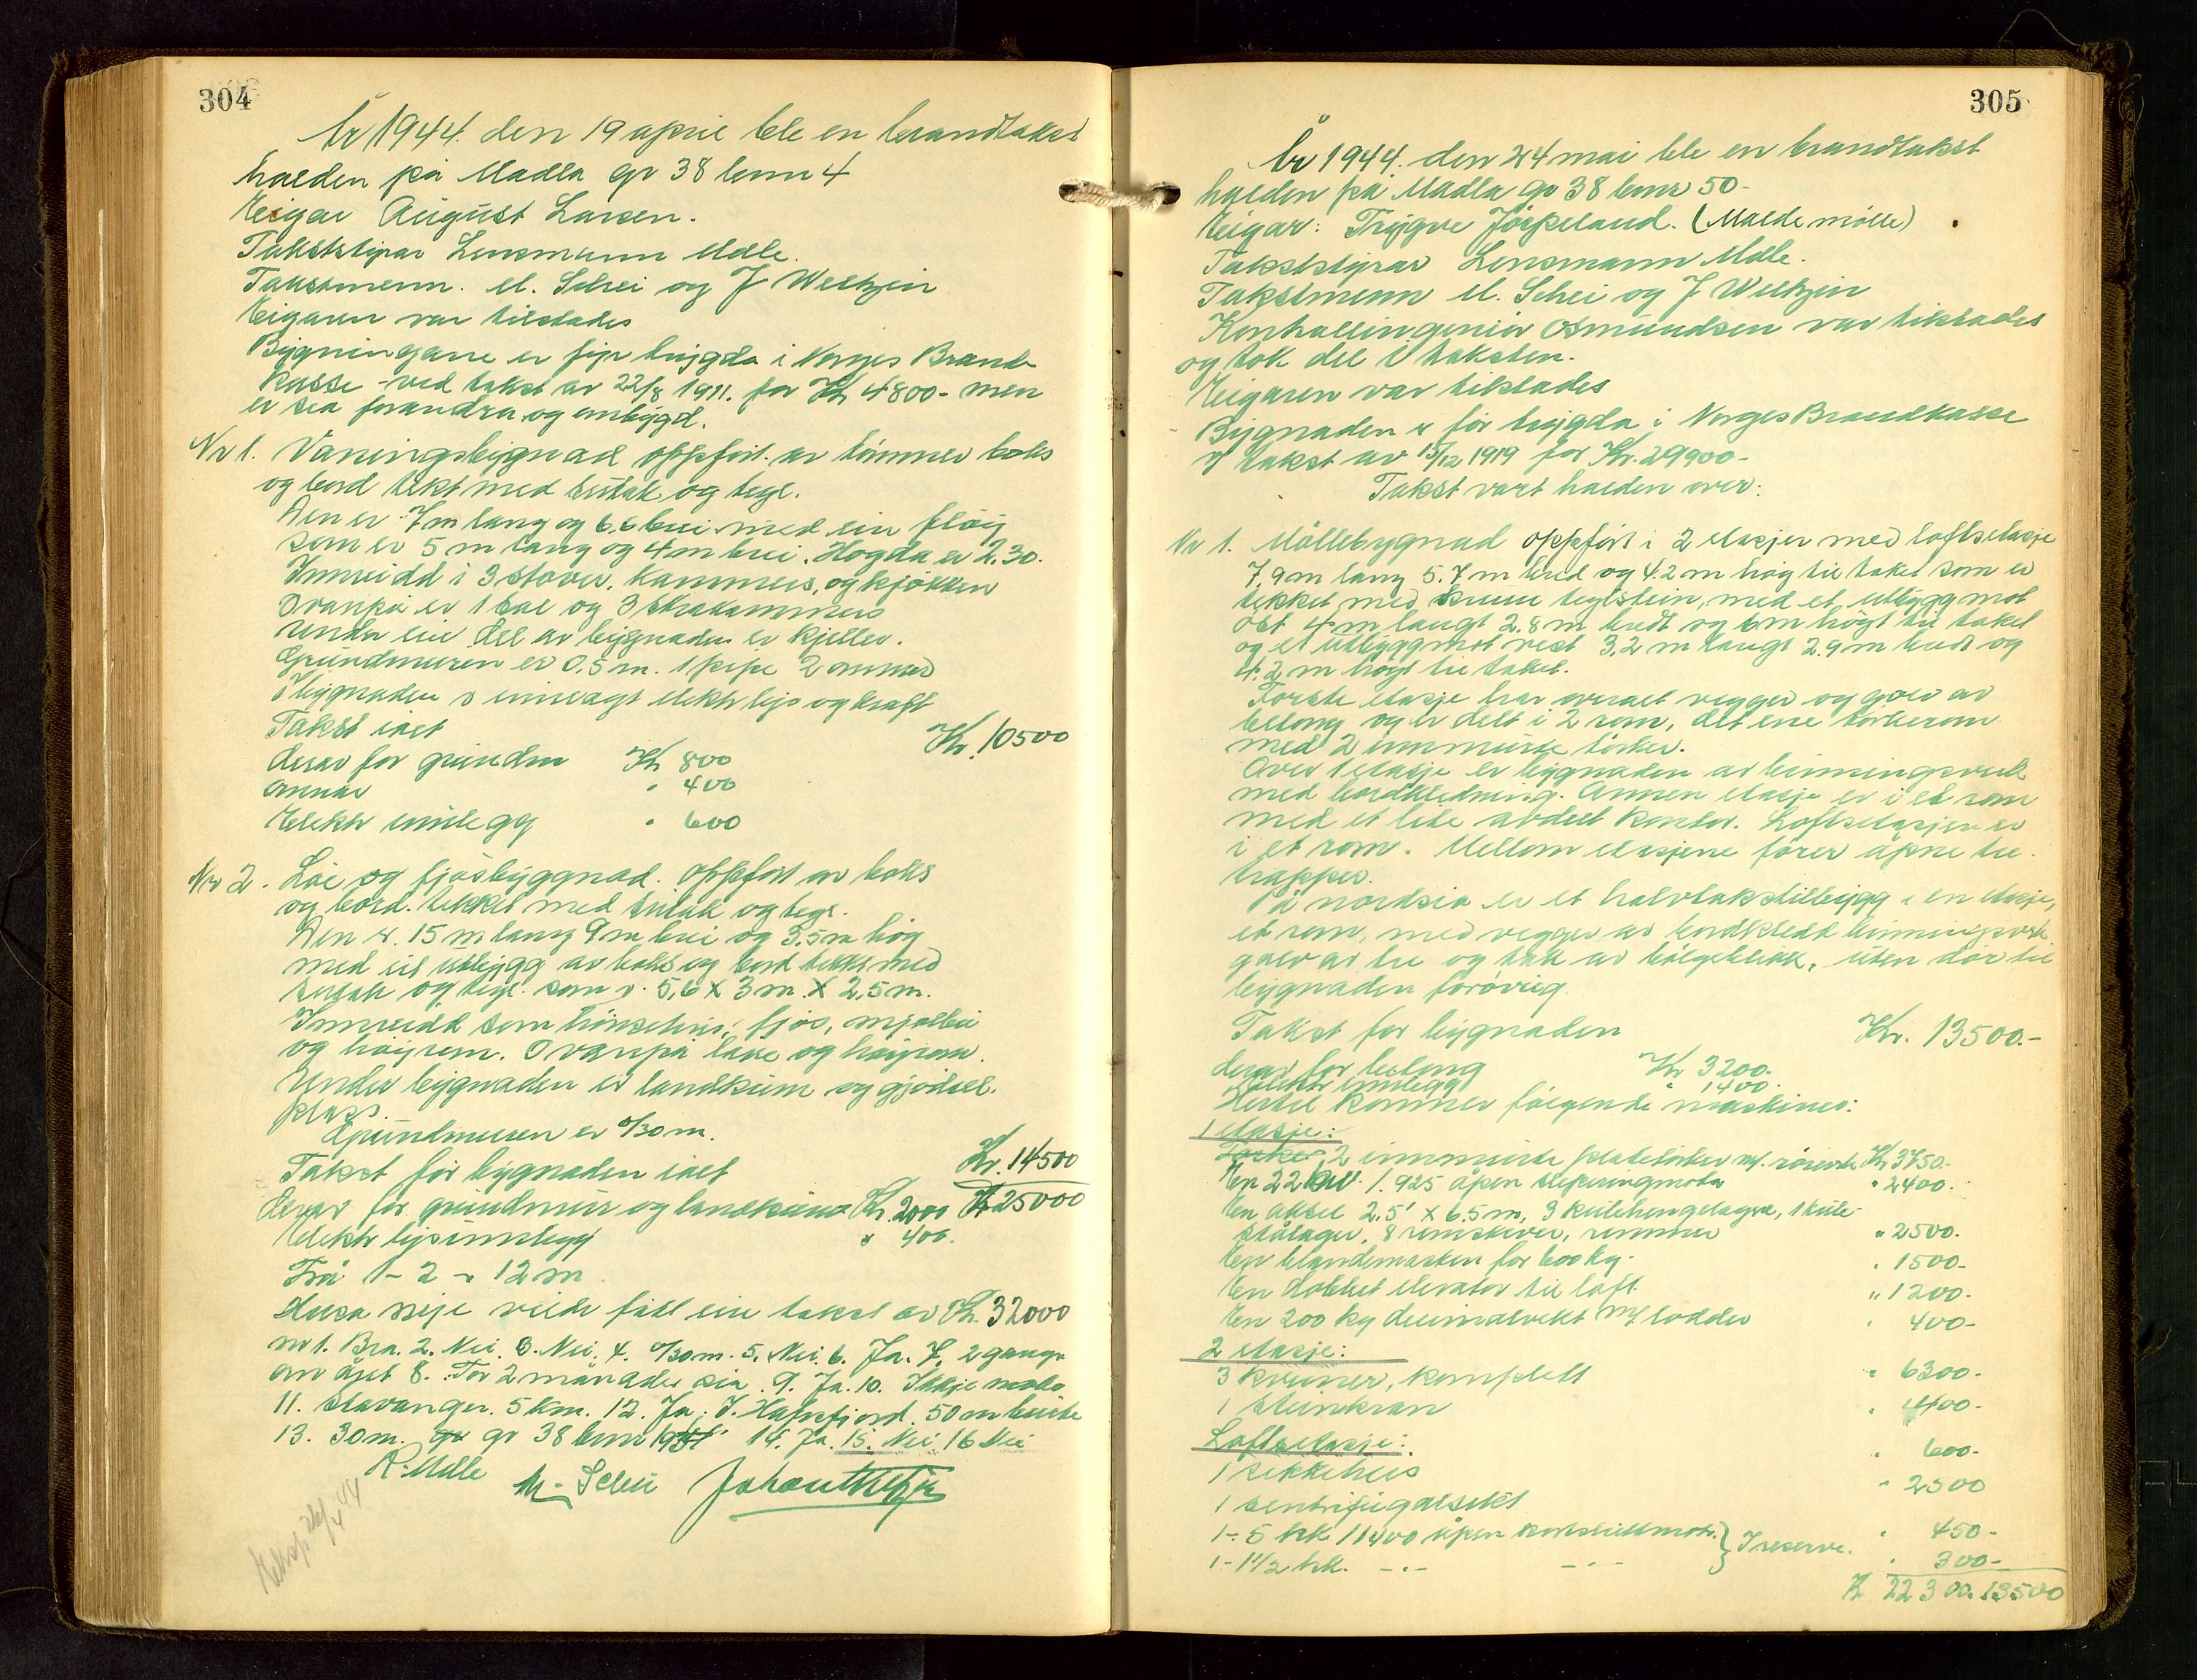 304
År 1944. den 19 april ble en brandtakst
halden på Madla gr 38 bnr 4
Eigar August Larsen.
Takststyrar Lensmann Mdle.
Takstmenn. M. Schei og J Weltzin
Eigaren var tilstades
Bygningane er fyr trygda i Norges Brand-
kasse ved takst av 22/8 1911. for Kr 4800- men
er sia forandra og ombygd.
Nr 1. Vaningsbygnad oppført av tømmer boks
og bord tekt med sutak og tegl.
Den er 7m lang og 6.6 brei med ein fløy
som er 5 m lang og 4m brei. Høgda er 2,30.
Innreidd i 3 stover, kammers, og kjøkken
Ovanpå er 1 sal og 3 skrakammers
Under ein del av bygnaden er kjeller.
Grundmuren er 0,5 m. 1 pipe 2 omnar
I bygnaden er innlagt elektr lys og kraft
Takst ialt Kr. 10500
derav for grundm Kr 800
omnar " 400
Elektr innlegg " 600
Nr 2. Løe og fjøsbyggnad. oppført av boks
og bord. tekket med sutak og tegl.
Den er. 15 m lang 9m brei og 3.5m høg
med eit utbygg av boks og bord tekt med
sutak og tegl. som er. 5,6 X 3m. X 2,5m.
Innreidd som hønsehus, fjøs, mjølbu
og høyrom. Ovanpå låve og høyrom.
Under bygnaden er landkum og gjødsel-
plass.
Grundmuren er 0/30 m.
Takst for bygnaden ialt Kr. 14500
derav for grundmur og landkum Kr. 2000 Kr 25000
Elektr lysinnlegg " 400.
Frå 1 - 2 - 12 m
Husa nye vilde fått ein takst av Kr. 32000
nr 1. Bra. 2. Nei. 3. Nei. 4. 0/30 m. 5. Nei. 6. Ja. 7. 2 gange
om året 8. For 2 månader sia. 9. Ja. 10. Ikkje
11. Stavanger. 5 km. 12. Ja. I. Hafrsfjord. 50 m
13. 30 m. gr 38 bnr 14. Ja. 15. Nei. 16 Nei
R. Mdle M. Schei Johan Weltzin
305
År 1944. den 24 mai ble en brandtakst
halden på Madla gr 38 bnr 50-
Eigar: Trygve Jørpeland. (Malde mølle)
Takststyrar Lensmann Mdle.
Takstmenn M. Schei og J Weltzin
Kontrollingeniør Osmundsen var tilstades
og tok del i taksten.
Eigaren var tilstades
Bygnaden er før trygda i Norges Brandkasse
v/ takst av 15/12 1919 for Kr. 29900-
Takst vart halden over:
Nr 1. Møllebygnad oppført i 2 etasjer med loftsetasje
7,9m lang 5.7 m bred og 4.2 m høg til taket som er
tekket med krum teglstein, med et utbygg mot
øst 4 m langt 2.8 m bredt og 6 m høgt til taket
og et utbygg mot vest 3,2 m langt 2.9 m bredt og
4.2 m høgt til taket.
Første etasje har overalt vegger og golv av
betong og er delt i 2 rom, det ene tørkerom
med 2 innmurte tørker.
Over 1 etasje er bygnaden av binningsverk
med bordkledning. Annen etasje er i et rom
med et lite avdelt kontor. Loftsetasjen er
i et rom. Mellom etasjene fører åpne tre-
trapper.
På nordsia er et halvtakstilbygg i en etasje,
et rom, med vegger av bordkledt binningsverk
golv av tre og tak av bølgeblikk, uten dør til
bygnaden forøvrig.
Takst for bygnaden Kr. 13500.-
derav for betong Kr 3200.
Elektr innlegg " 1400.
Hertil kommer følgende maskiner:
1 etasje:
2 innmurte platetørker m/ rørverk Kr 3750.-
En 22 1.925 åpen sleperingmotor " 2400.
En aksel 2,5" x 6.5 m, 3 kulehengelagre, 1 kule-
stålager, 8 remskiver, remmer " 2500.
En blandemaskin for 600 kg. " 1500-
En dobbelt elevator til loft. " 1200.
En 200 kg decimalvekt m/ lodder " 400-
2 etasje:
3 kverner, komplett " 6300-
1 steinkran " 400-
Loftsetasje: " 600-
1 sekkeheis " 2500
1 sentrifugalsikt
1- 5 hk 1400 åpen kortsluttmotor } I reserve. " 450-
1- 1 1/2 hk. -"- -"- " 300-
Kr 22300. 13500